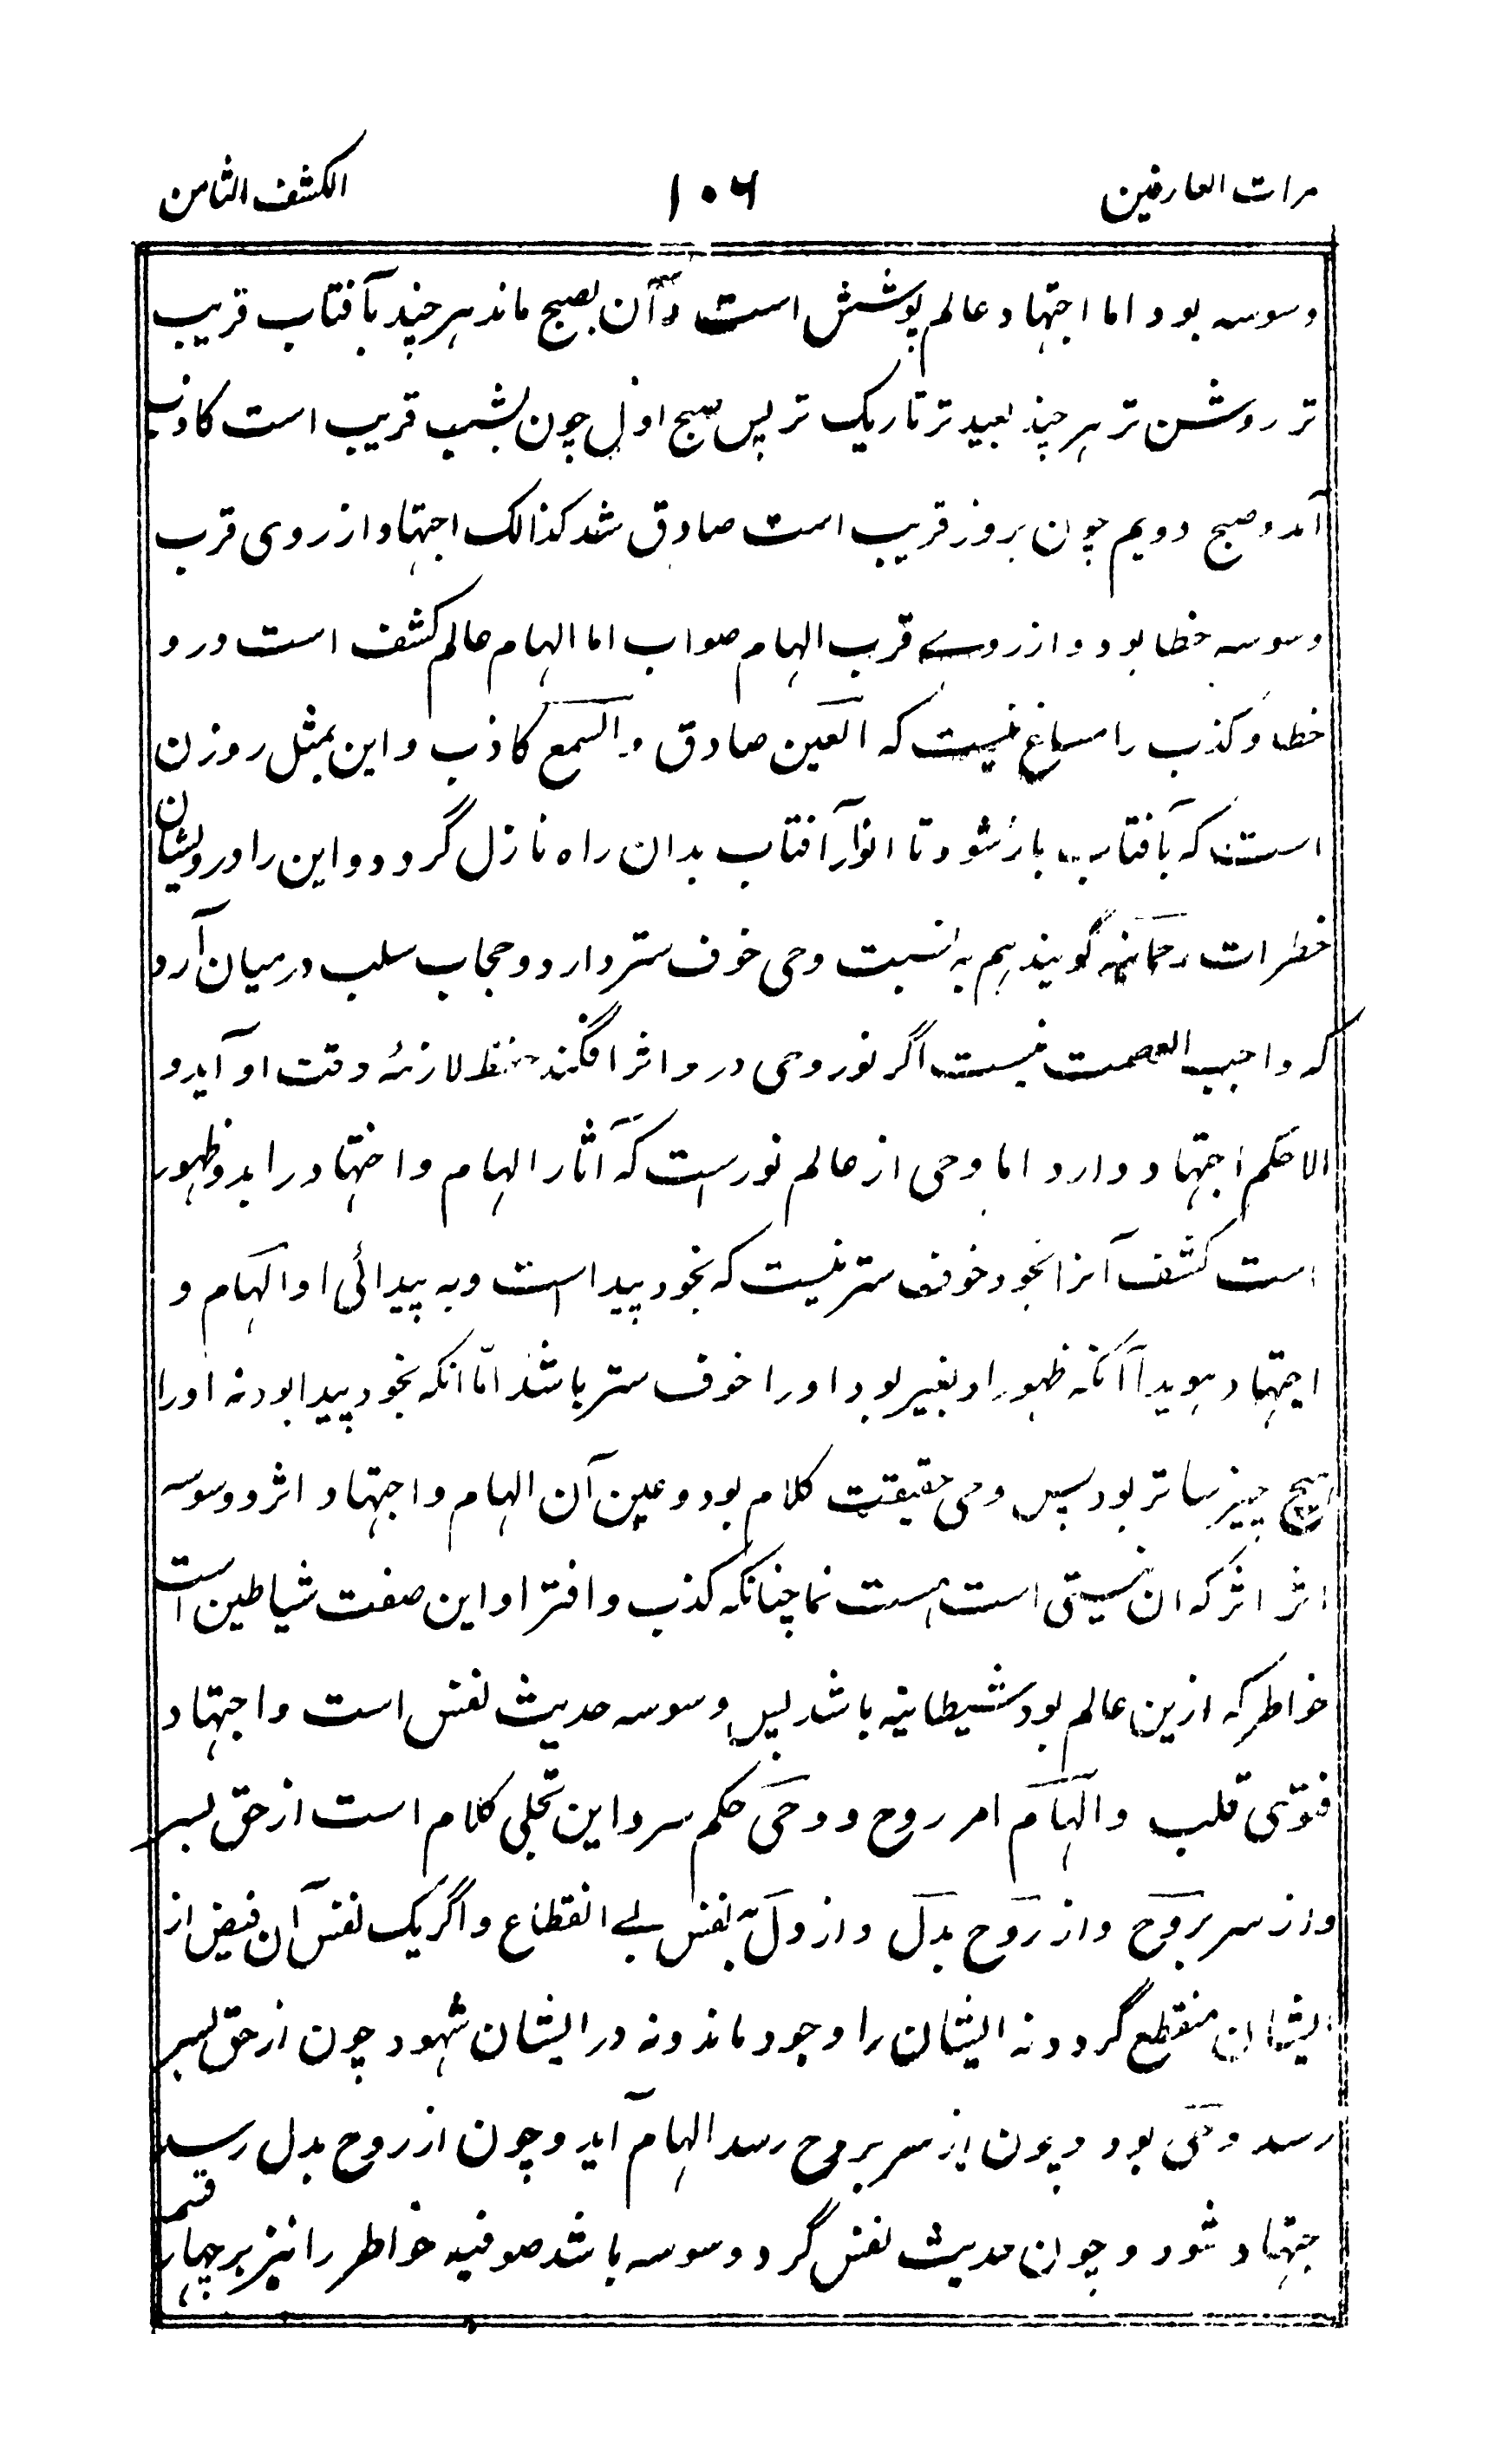 مرات العارفین ۱۰۶ الکشف الثامن
وسوسه بود اما اجتهاد عالم پوشش است و آن بصبح ماند هر چند بآفتاب قریب
تر روشن تر هر چند بعید تر تاریک تر پس صبح اول چون بشب قریب است کاذب
آمد و صبح دویم چون بروز قریب است صادق شد کذالک اجتهاد از روی قرب
وسوسه خطا بود و از روے قرب الهام صواب اما الهام عالم کشف است درو
خطا و کذب را مساغ نیست که العین صادق والسمع کاذب و این بمثل روزن
است که بآفتاب باز شود تا انوار آفتاب بدان راه نازل گردد و این را درویشان
خطرات رحمانیه گویند هم به نسبت وحی خوف ستر دارد و حجاب سلب درمیان آرد
که واجب العصمت نیست اگر نور وحی درو اثر افگند حفظ لازمهٔ وقت او آید و
الا حکم اجتهاد دارد اما وحی از عالم نور است که آثار الهام و اجتهاد را بدو ظهور
است کشف آنرا بخود خوف ستر نیست که بخود پیدا است و به پیدائی او الهام و
اجتهاد هویدا آنکه ظهور او بغیر بود او را خوف ستر باشد امّا انکه بخود پیدا بود نه اورا
هیچ چیز ساتر بود پس وحی حقیقت کلام بود و عین آن الهام و اجتهاد اثر و وسوسه
اثر اثر که ان نیستی است هست نما چنانکه کذب و افترا و این صفت شیاطین است
خواطر که ازین عالم بود شیطانیه باشد پس وسوسه حدیث نفس است و اجتهاد
فتویٰ قلب و الهام امر روح و وحی حکم سر و این تجلی کلام است از حق بسر
و از سر بروح و از روح بدل و از دل بنفس بے انقطاع و اگر یک نفس آن فیض از
ایشان منقطع گردد نه ایشان را وجود ماند و نه در ایشان شهود چون از حق بسر
رسد وحی بود و چون از سر بروح رسد الهام آید و چون از روح بدل رسد
جتهاد شود و چون حدیث نفس گردد وسوسه باشد صوفیه خواطر را نیز بر چهار قسم